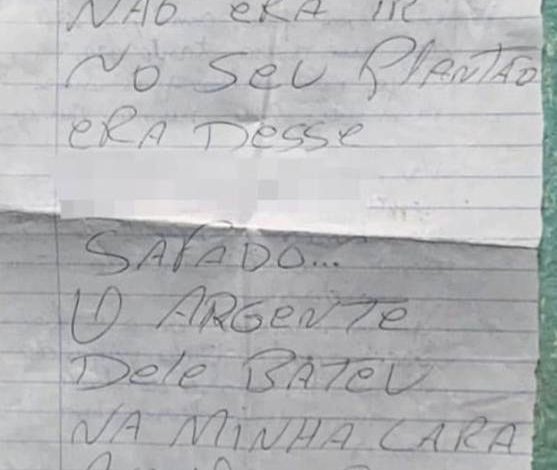 NÃO ERA IR
NO SEU PLANTÃO
ERA DESSE
SAFADO...
O ARGENTE
DELE BATEU
NA MINHA CARA